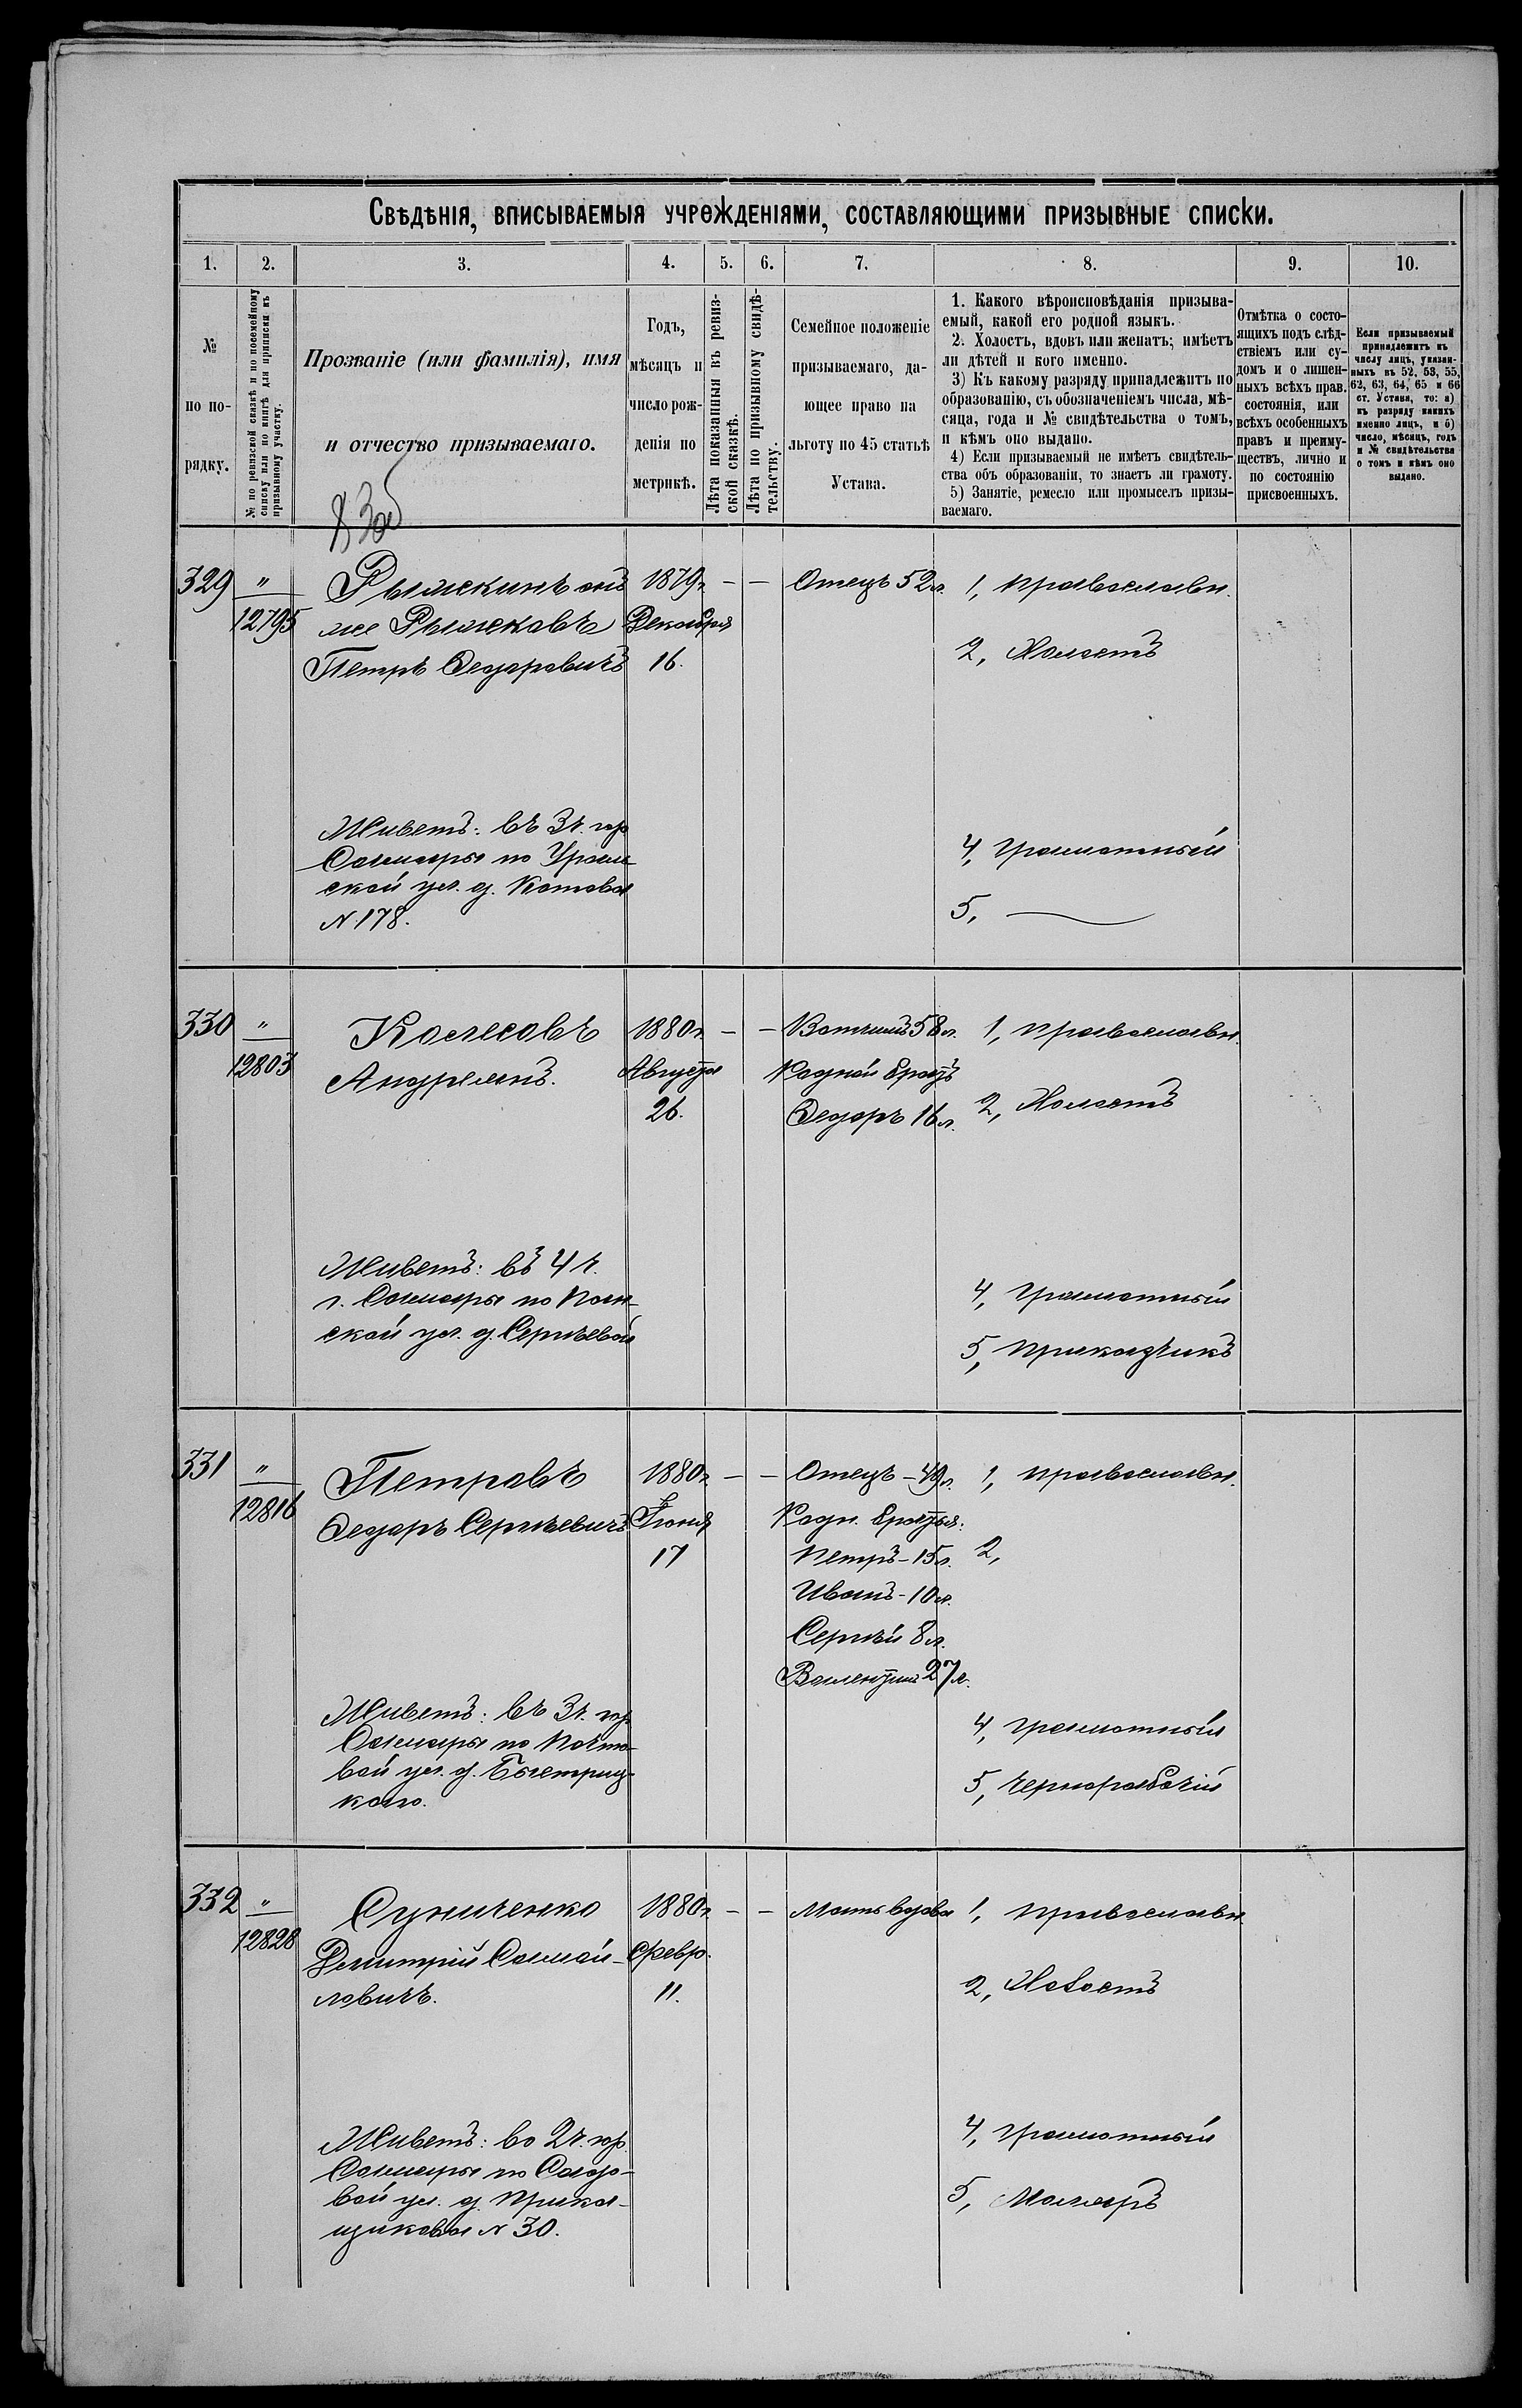 Свѣдѣнія, вписываемыя учрежденіями, составляющими призывные списки.
1. 2. 3. 4. 5. 6. 7. 8. 9. 10.
№ по порядку.
№ по ревизской сказкѣ и по посемейному
списку или по книгѣ для приписки къ
призывному участку.
Прозваніе (или фамилія), имя
и отчество призываемаго.
Годъ,
мѣсяцъ и
число рож-
денія по
метрикѣ.
Лѣта показанныя въ ревиз-
ской сказкѣ.
Лѣта по призывному свидѣ-
тельству.
Семейное положеніе
призываемаго, да-
ющее право на
льготу по 45 статьѣ
Устава.
1. Какого вѣроисповѣданія призыва-
емый, какой его родной языкъ.
2. Холостъ, вдовъ или женатъ; имѣетъ
ли дѣтей и кого именно.
3) Къ какому разряду принадлежитъ по
образованію, съ обозначеніемъ числа, мѣ-
сяца, года и № свидѣтельства о томъ,
и кѣмъ оно выдано.
4) Если призываемый не имѣетъ свидѣтель-
ства объ образованіи, то знаетъ ли грамоту.
5) Занятіе, ремесло или промыселъ призы-
ваемаго.
Отмѣтка о состо-
ящихъ подъ слѣд-
ствіемъ или су-
домъ и о лишен-
ныхъ всѣхъ прав.
состоянія, или
всѣхъ особенныхъ
правъ и преиму-
ществъ, лично и
по состоянію
присвоенныхъ.
Если призываемый
принадлежитъ къ
числу лицъ, указан-
ныхъ въ 52, 53, 55,
62, 63, 64, 65 и 66
ст. Устава, то: а)
къ разряду какихъ
именно лицъ, и б)
число, мѣсяцъ, годъ
и № свидѣтельства
о томъ и кѣмъ оно
выдано.
329 " Рыжкинъ онъ 1879г. - - Отецъ 52л. 1, православн.
12795 же Рыжковъ Декабря
Петръ Ѳедоровичъ 16. 2, Холостъ
Живетъ: въ 3ч. гор
Самары по Ураль-
ской ул. д. Котова
N 178.
4, грамотный
5, —
330 " Колесовъ 1880г. - - Вотчимъ 58л. 1, православн.
12803 Андреянъ. Августа Родной братъ
26. Ѳедоръ 16л. 2, Холостъ
Живетъ: въ 4ч.
г. Самары по
ской ул. д. Сергѣевой
4, грамотный
5, приказчикъ
331 " Петровъ 1880г. - - Отецъ - 49л. 1, православн.
12816 Ѳедоръ Сергѣевичъ Іюня Родн. братья:
17 Петръ - 15л. 2,
Иванъ - 10л.
Сергѣй 8л.
Валентинъ 27л.
Живетъ: въ 3ч. гор
Самары по Почто-
вой ул. д. Быстриц-
каго.
4, грамотный
5, чернорабочій
332 " Суниченко 1880г. - - Мать вдова 1, православн
12828 Димитрій Самой- Февр.
ловичъ. 11. 2, Холостъ
Живетъ: во 2ч. гор.
Самары по Садо-
вой ул. д. Прика-
щикова N 30.
4, грамотный
5, Маляръ